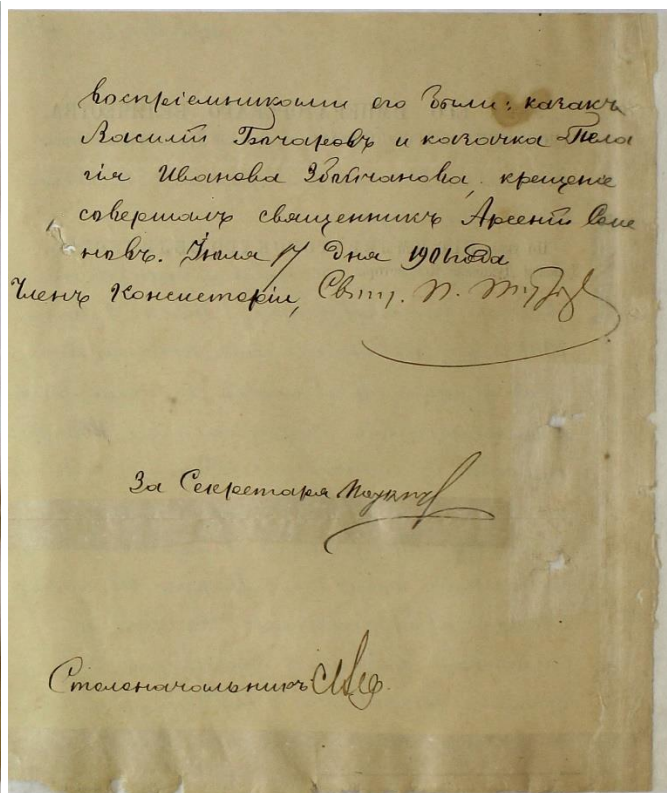 воспріемниками его были: казакъ
Василій Бочаровъ и казачка Пела
гія Иванова Збойчанова, крещеніе
совершалъ священникъ Арсеній Семе
новъ. Іюля 17 дня 1901 года
Членъ Консисторіи, Свящ. П.
За Секретаря
Столоначальникъ